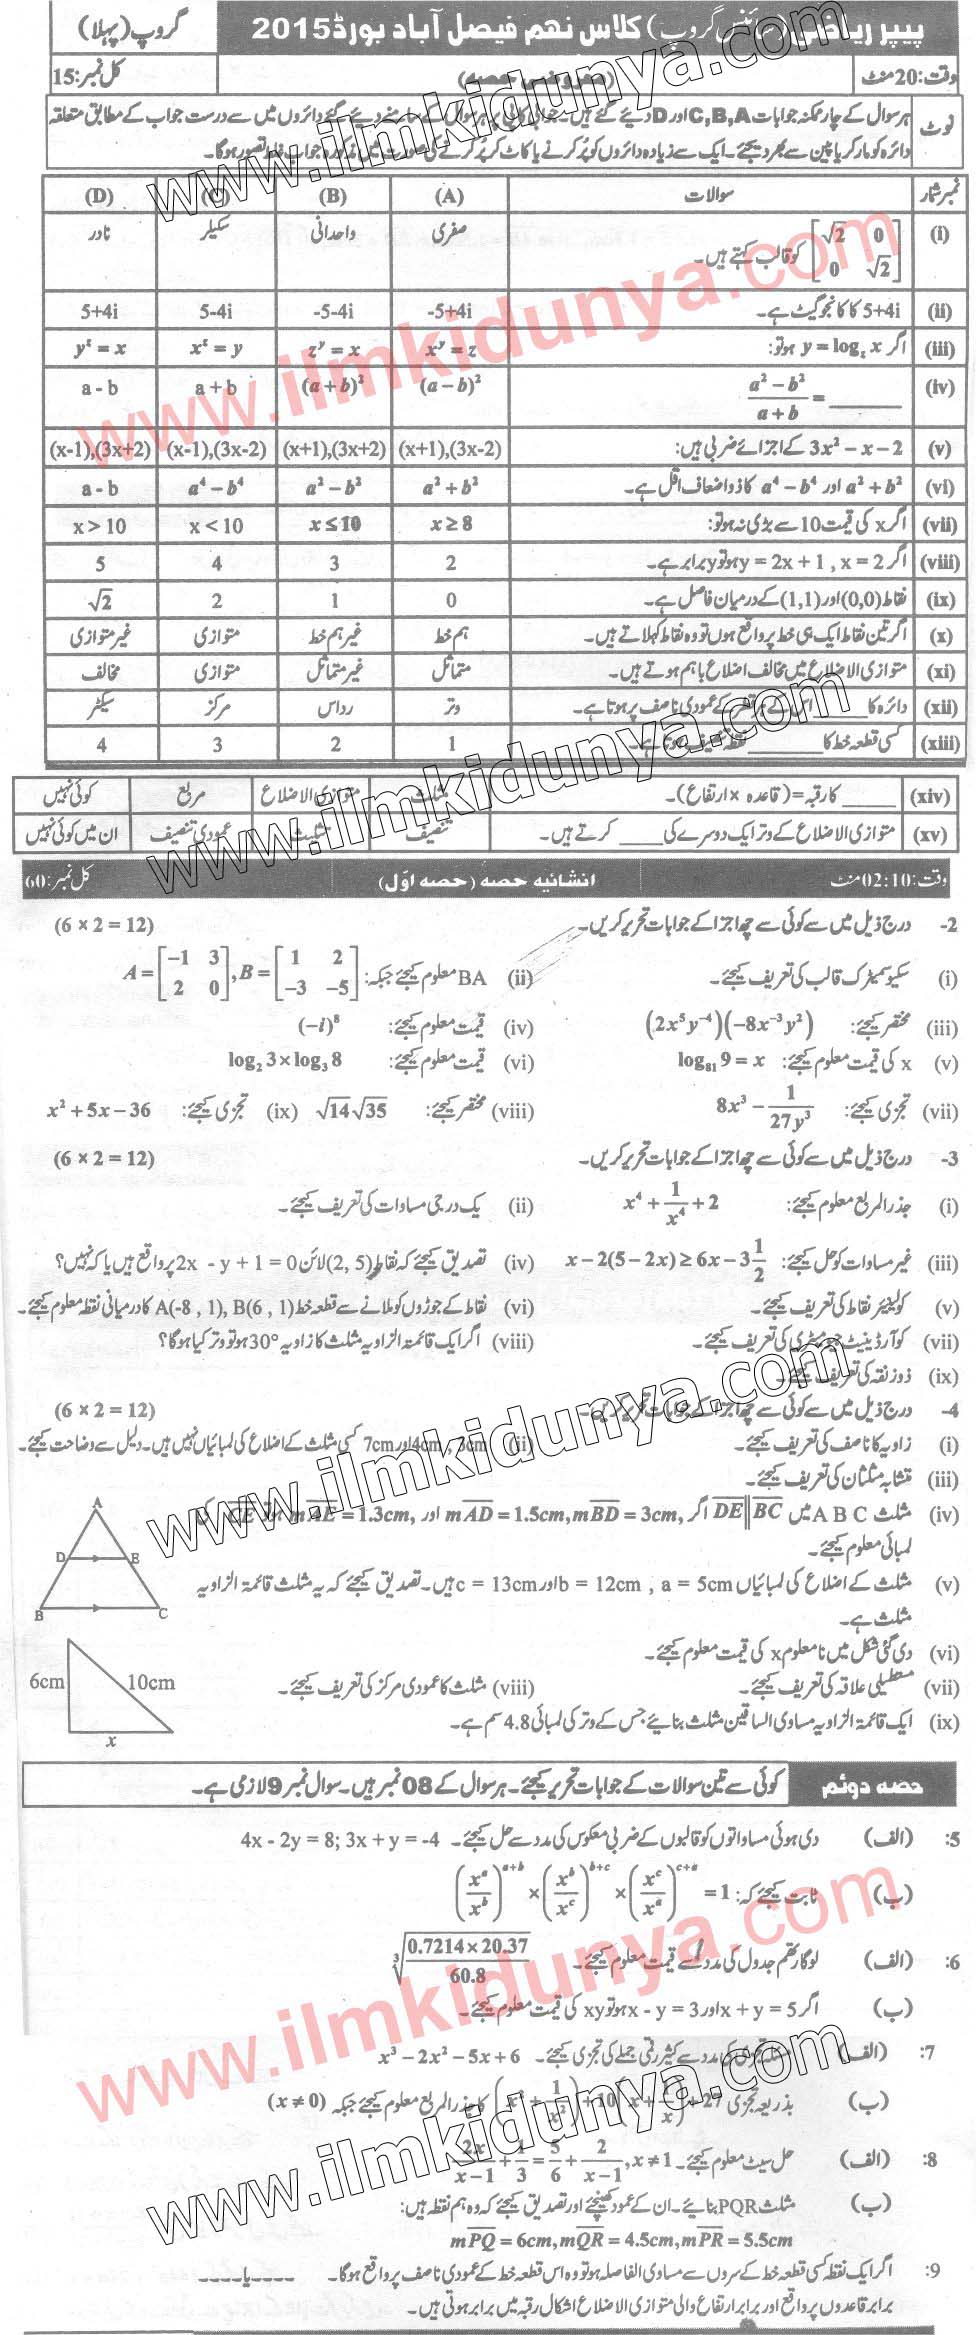 پیپر ریاضی (سائنس گروپ) کلاس نہم فیصل آباد بورڈ 2015 گروپ (پہلا)
وقت: 20 منٹ (معروضی حصہ) کل نمبر: 15
نوٹ ہر سوال کے چار ممکنہ جوابات C,B,A اور D دیئے گئے ہیں۔ جوابی کاپی پر ہر سوال کے سامنے دیئے گئے دائروں میں سے درست جواب کے مطابق متعلقہ
دائرہ کو مارکر یا پین سے بھر دیجئے۔ ایک سے زیادہ دائروں کو پُر کرنے یا کاٹ کر پُر کرنے کی صورت میں مذکورہ جواب غلط تصور ہوگا۔
نمبر شمار سوالات (A) (B) (C) (D)
(i) [√2 0; 0 √2] کو قالب کہتے ہیں۔ صفری واحدانی سکیلر نادر
(ii) 5+4i کا کانجوگیٹ ہے۔ -5+4i -5-4i 5-4i 5+4i
(iii) اگر y = log_z x ہو تو: x^y = z z^y = x x^z = y y^z = x
(iv) (a² – b²)/(a + b) = ______ (a – b)² (a + b)² a + b a - b
(v) 3x² – x – 2 کے اجزائے ضربی ہیں: (x+1),(3x-2) (x+1),(3x+2) (x-1),(3x-2) (x-1),(3x+2)
(vi) a² + b² اور a⁴ – b⁴ کا ذواضعاف اقل ہے۔ a² + b² a² – b² a⁴ – b⁴ a - b
(vii) اگر x کی قیمت 10 سے بڑی نہ ہو تو: x ≥ 8 x ≤ 10 x < 10 x > 10
(viii) اگر y = 2x + 1 , x = 2 ہو تو y برابر ہے۔ 2 3 4 5
(ix) نقاط (0,0) اور (1,1) کے درمیان فاصل ہے۔ 0 1 2 √2
(x) اگر تین نقاط ایک ہی خط پر واقع ہوں تو وہ نقاط کہلاتے ہیں۔ ہم خط غیر ہم خط متوازی غیر متوازی
(xi) متوازی الاضلاع میں مخالف اضلاع باہم ہوتے ہیں۔ متماثل غیر متماثل متوازی مخالف
(xii) دائرہ کا ______ اس کے ہر وتر کے عمودی ناصف پر ہوتا ہے۔ وتر رداس مرکز سیکٹر
(xiii) کسی قطعہ خط کا ______ نقطہ تنصیف ہوتا ہے۔ 1 2 3 4
(xiv) ______ کا رقبہ = (قاعدہ × ارتفاع)۔ مثلث متوازی الاضلاع مربع کوئی نہیں
(xv) متوازی الاضلاع کے وتر ایک دوسرے کی ____ کرتے ہیں۔ تنصیف تثلیث عمودی تنصیف ان میں کوئی نہیں
وقت: 02:10 منٹ انشائیہ حصہ (حصہ اوّل) کل نمبر: 60
2- درج ذیل میں سے کوئی سے چھ اجزا کے جوابات تحریر کریں۔ (6 × 2 = 12)
(i) سکیو سمیٹرک قالب کی تعریف کیجئے۔ (ii) BA معلوم کیجئے جبکہ: A = [-1 3; 2 0], B = [1 2; -3 -5]
(iii) مختصر کیجئے: (2x⁵y⁻⁴)(-8x⁻³y²) (iv) قیمت معلوم کیجئے: (–i)⁸
(v) x کی قیمت معلوم کیجئے: log₈₁ 9 = x (vi) قیمت معلوم کیجئے: log₂ 3 × log₃ 8
(vii) تجزی کیجئے: 8x³ – 1/(27y³) (viii) مختصر کیجئے: √14 √35 (ix) تجزی کیجئے: x² + 5x – 36
3- درج ذیل میں سے کوئی سے چھ اجزا کے جوابات تحریر کریں۔ (6 × 2 = 12)
(i) جذر المربع معلوم کیجئے: x⁴ + 1/x⁴ + 2 (ii) یک درجی مساوات کی تعریف کیجئے۔
(iii) غیر مساوات کو حل کیجئے: x – 2(5 – 2x) ≥ 6x – 3 1/2 (iv) تصدیق کیجئے کہ نقاط (2, 5) لائن 2x - y + 1 = 0 پر واقع ہیں یا کہ نہیں؟
(v) کولینیئر نقاط کی تعریف کیجئے۔ (vi) نقاط کے جوڑوں کو ملانے سے قطعہ خط A(-8 , 1), B(6 , 1) کا درمیانی نقطہ معلوم کیجئے۔
(vii) کوآرڈینیٹ جیومیٹری کی تعریف کیجئے۔ (viii) اگر ایک قائمۃ الزاویہ مثلث کا زاویہ 30° ہو تو وتر کیا ہوگا؟
(ix) ذوزنقہ کی تعریف کیجئے۔
4- درج ذیل میں سے کوئی سے چھ اجزا کے جوابات تحریر کریں۔ (6 × 2 = 12)
(i) زاویہ کا ناصف کی تعریف کیجئے۔ (ii) 3cm , 4cm اور 7cm کسی مثلث کے اضلاع کی لمبائیاں نہیں ہیں۔ دلیل سے وضاحت کیجئے۔
(iii) متشابہ مثلثان کی تعریف کیجئے۔
(iv) مثلث A B C میں DE ∥ BC اگر mAD = 1.5cm, mBD = 3cm, اور mAE = 1.3cm, ہو تو CE کی
لمبائی معلوم کیجئے۔
A D E B C
(v) مثلث کے اضلاع کی لمبائیاں b = 12cm , a = 5cm اور c = 13cm ہیں۔ تصدیق کیجئے کہ یہ مثلث قائمۃ الزاویہ
مثلث ہے۔
(vi) دی گئی شکل میں نامعلوم x کی قیمت معلوم کیجئے۔
6cm 10cm x
(vii) مستطیلی علاقہ کی تعریف کیجئے۔ (viii) مثلث کا عمودی مرکز کی تعریف کیجئے۔
(ix) ایک قائمۃ الزاویہ مساوی الساقین مثلث بنائیے جس کے وتر کی لمبائی 4.8 سم ہے۔
حصہ دوئم کوئی سے تین سوالات کے جوابات تحریر کیجئے۔ ہر سوال کے 08 نمبر ہیں۔ سوال نمبر 9 لازمی ہے۔
5: (الف) دی ہوئی مساواتوں کو قالبوں کے ضربی معکوس کی مدد سے حل کیجئے۔ 4x - 2y = 8; 3x + y = -4
(ب) ثابت کیجئے کہ: (x^a/x^b)^(a+b) × (x^b/x^c)^(b+c) × (x^c/x^a)^(c+a) = 1
6: (الف) لوگارتھم جدول کی مدد سے قیمت معلوم کیجئے۔ ∛((0.7214 × 20.37)/60.8)
(ب) اگر x + y = 5 اور x - y = 3 ہو تو xy کی قیمت معلوم کیجئے۔
7: (الف) مسئلہ تجزی کی مدد سے کثیر رقمی جملے کی تجزی کیجئے۔ x³ – 2x² – 5x + 6
(ب) بذریعہ تجزی (x² + 1/x²) + 10(x + 1/x) + 27 کا جذر المربع معلوم کیجئے جبکہ (x ≠ 0)
8: (الف) حل سیٹ معلوم کیجئے۔ 2x/(x – 1) + 1/3 = 5/6 + 2/(x – 1), x ≠ 1
(ب) مثلث PQR بنائیے۔ ان کے عمود کھینچئے اور تصدیق کیجئے کہ وہ ہم نقطہ ہیں:
mPQ = 6cm, mQR = 4.5cm, mPR = 5.5cm
9: اگر ایک نقطہ کسی قطعہ خط کے سروں سے مساوی الفاصلہ ہو تو وہ اس قطعہ خط کے عمودی ناصف پر واقع ہوگا۔ ----یا----
برابر قاعدوں پر واقع اور برابر ارتفاع والی متوازی الاضلاع اشکال رقبہ میں برابر ہوتی ہیں۔
www.ilmkidunya.com
www.ilmkidunya.com
www.ilmkidunya.com
www.ilmkidunya.com
www.ilmkidunya.com
www.ilmkidunya.com